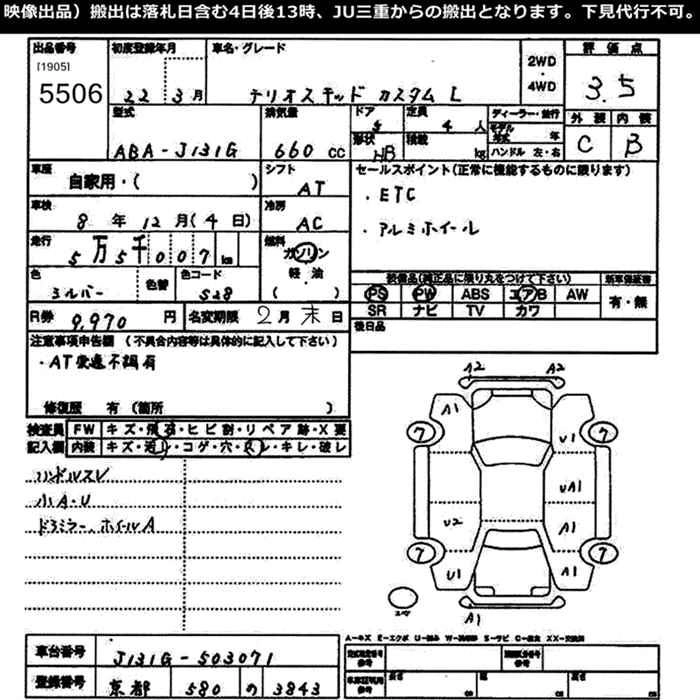 映像出品）搬出は落札日含む4日後13時、JU三重からの搬出となります。下見代行不可。
出品番号 初度登録年月 車名・グレード 2WD・4WD 評価点
[1905]
5506 22 3月 テリオスキッド カスタム L 3.5
型式 排気量 ドア 定員 ディーラー・並行 外装 内装
ABA-J131G 660cc 5 4人 モデル年式 年 C B
形状 HB 積載 kg ハンドル 左・右
車歴 自家用・（ ） シフト AT セールスポイント(正常に機能するものに限ります)
車検 8年12月(4日) 冷房 AC ・ETC
・アルミホイール
走行 5万5千007km 燃料 ガソリン
軽・油
( )
色 シルバー 色替 色コード S28
装備品(純正品に限り丸をつけて下さい) 新車保証書
PS PW ABS エアB AW 有・無
SR ナビ TV カワ
R券 9,970円 名変期限 2月末日 後日品
注意事項申告欄（不具合内容等は具体的に記入して下さい）
・AT変速不調有
修復歴 有（箇所 ）
検査員記入欄 FW キズ・飛石・ヒビ割・リペア跡・X要
内装 キズ・汚れ・コゲ・穴・スレ・キレ・破レ
ハンドルスレ
小A・U
ドアミラー、ホイールA
A2 A2
A1
7 U1 7
UA1
U2 A1
7 7
U1 A1
A1
A－キズ E－エクボ
車台番号 J131G-503071
登録番号 京都 580 の 3843
長さ 幅 高さ
cm cm cm